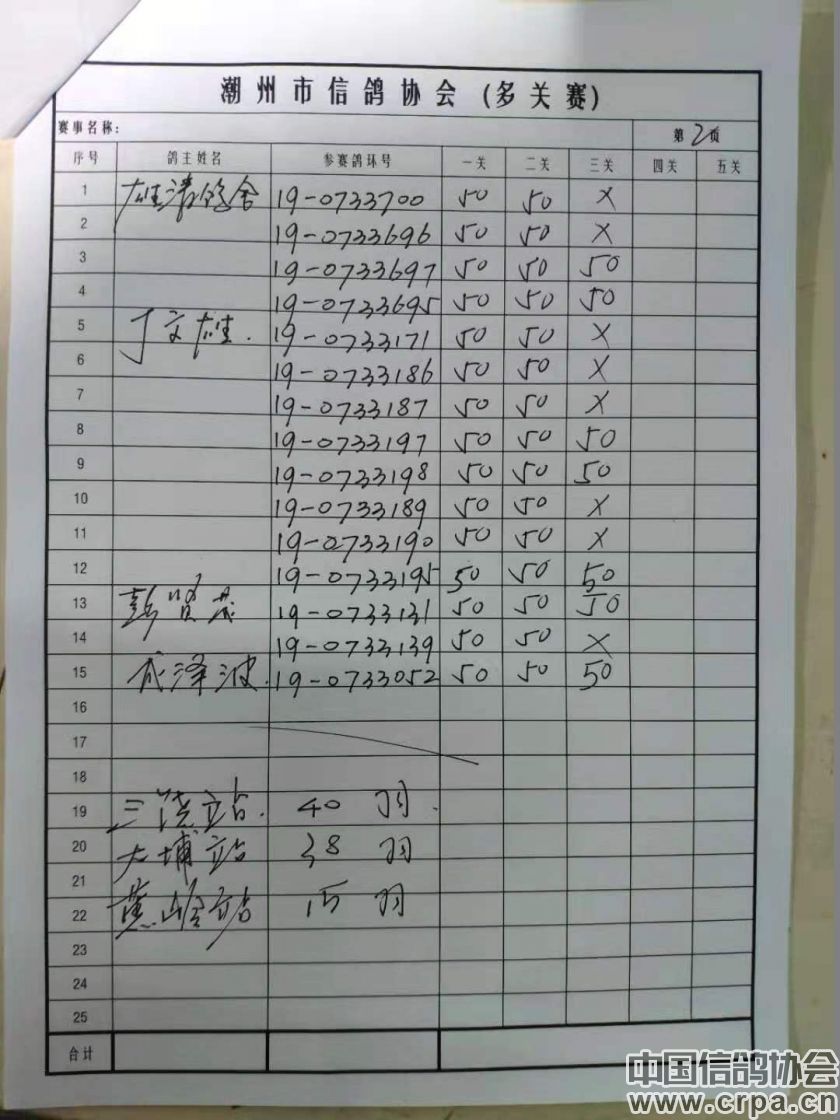 潮州市信鸽协会(多关赛)
赛事名称: 第2页
序号 鸽主姓名 参赛鸽环号 一关 二关 三关 四关 五关
1 雄清鸽舍 19-0733700 50 50 X
2 19-0733696 50 50 X
3 19-0733697 50 50 50
4 19-0733695 50 50 50
5 丁文雄. 19-0733171 50 50 X
6 19-0733186 50 50 X
7 19-0733187 50 50 X
8 19-0733197 50 50 50
9 19-0733198 50 50 50
10 19-0733189 50 50 X
11 19-0733190 50 50 X
12 19-0733195 50 50 50
13 彭贤茂 19-0733131 50 50 50
14 19-0733139 50 50 X
15 成泽波. 19-0733052 50 50 50
16
17
18
19 三饶站. 40 羽.
20 大埔站 38 羽
21
22 蕉岭站 15 羽
23
24
25
合计
中国信鸽协会
www.crpa.cn